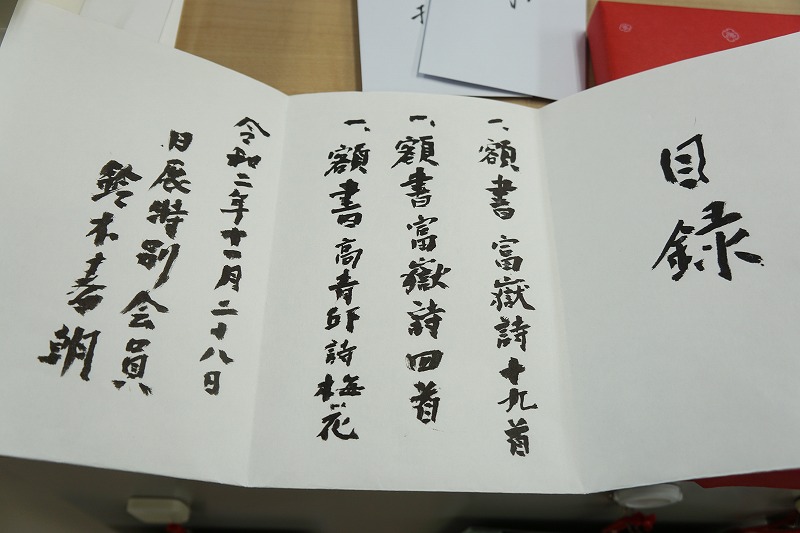 目録
一、額書 富嶽詩十九首
一、額書富嶽詩四首
一、額書高青邱詩梅花
令和二年十一月二十八日
日展特別会員
鈴木春朝